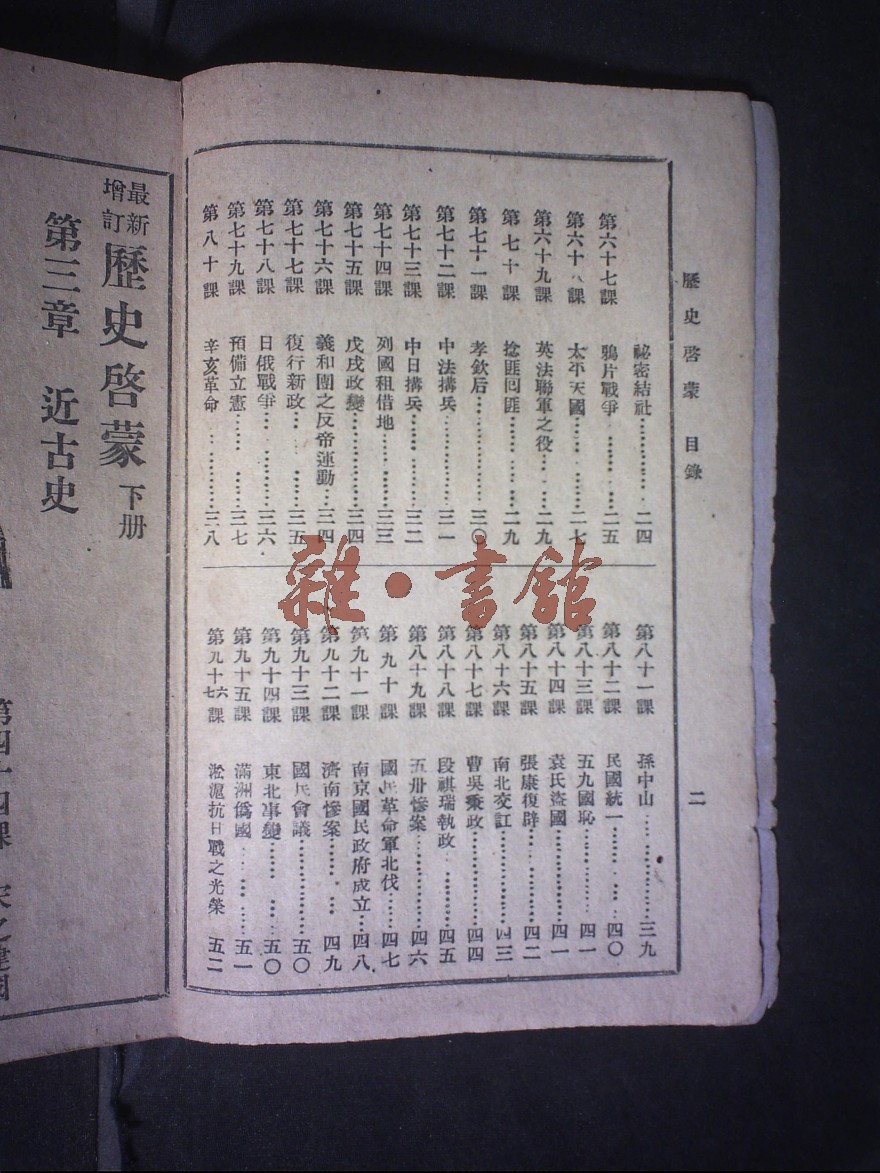 歷史啓蒙 目錄 二
祕密結社……二四
第六十七課 鴉片戰爭……二五
第六十八課 太平天國……二七
第六十九課 英法聯軍之役……二九
第七十課 捻匪回匪……二九
第七十一課 孝欽后……三〇
第七十二課 中法搆兵……三一
第七十三課 中日搆兵……三二
第七十四課 列國租借地……三三
第七十五課 戊戌政變……三四
第七十六課 義和團之反帝運動…三四
第七十七課 復行新政……三五
第七十八課 日俄戰爭……三六
第七十九課 預備立憲……三七
第八十課 辛亥革命……三八
第八十一課 孫中山……三九
第八十二課 民國統一……四〇
第八十三課 五九國恥……四一
第八十四課 袁氏盜國……四一
第八十五課 張康復辟……四二
第八十六課 南北交訌……四三
第八十七課 曹吳秉政……四四
第八十八課 段祺瑞執政……四五
第八十九課 五卅慘案……四六
第九十課 國民革命軍北伐……四七
第九十一課 南京國民政府成立…四八
第九十二課 濟南慘案……四九
第九十三課 國民會議……五〇
第九十四課 東北事變……五〇
第九十五課 滿洲僞國……五一
第九十六七課 淞滬抗日戰之光榮 五二
雜·書館
最新增訂 歷史啓蒙 下册
第三章 近古史
第四十四課 宋之建國